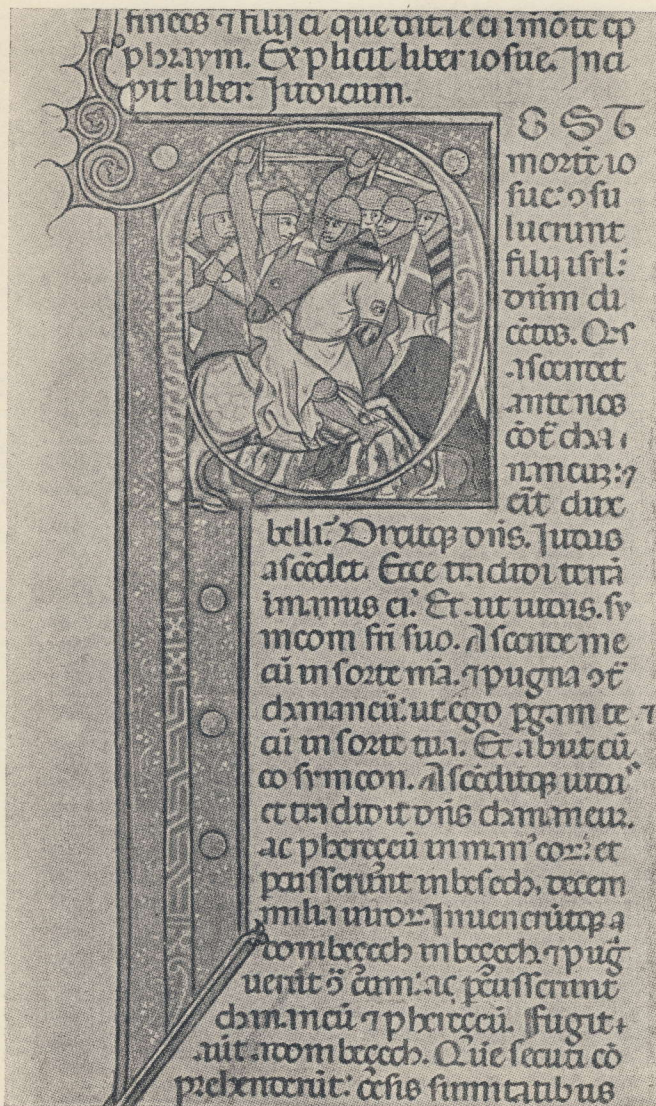 finees ⁊ filij ei' que data ē ei ī mōte ep
phraym. Explicit liber iosue. Inci
pit liber. Judicum.
P OST
mortē io
sue: ↄsu
luerunt
filij isrl'.
dñm di
cētes. Q's
ascendet
ante nos
cōt' cha
naneū: ⁊
erit dux
belli. Dixitq; dñs. Judas
ascēdet. Ecce tradidi terrā
ī manus ei'. Et ait iudas. sy
meon fri suo. Ascende me
cū in sorte mea. ⁊ pugna ↄt'
chananeū: ut ego pgam te
cū in sorte tua. Et abiit cū
eo symeon. Ascēditq; iuda
et tradidit dñs chananeū.
ac pherezeū in man' eor': et
pcusserunt in besech. decem
milia uiror'. Inuenerūtq; a
donibezech in bezech. ⁊ pug
uerūt ↄ̄ eum: ac pcusserunt
chananeū ⁊ pherezeū. Fugit
aūt adonibezech. Quē secuti cō
prehenderūt: cesis summitatibus